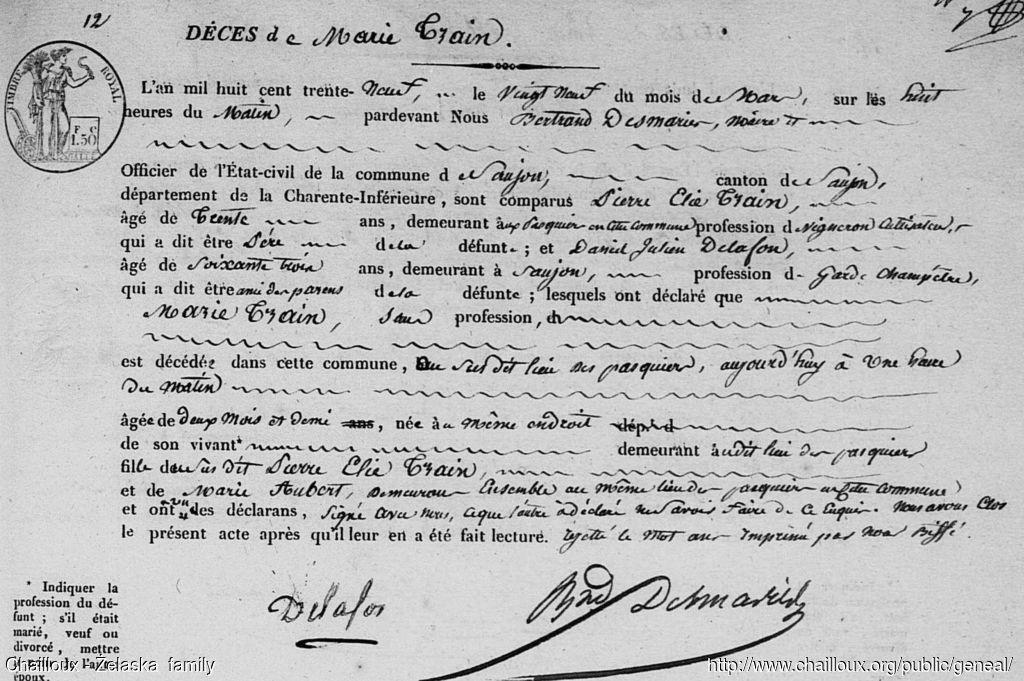 12
DÉCES de Marie Train.
TIMBRE ROYAL
F. C
1.50
L'an mil huit cent trente-Neuf, le Vingt Neuf du mois de Mars, sur les huit
heures du Matin, pardevant Nous Bertrand Desmaries, maire et
Officier de l'État-civil de la commune de Saujon, canton de Saujon,
département de la Charente-Inférieure, sont comparus Pierre Elie Train,
âgé de Trente ans, demeurant aux Pasquier en cette commune profession de Vigneron Cultivateur,
qui a dit être Père de la défunte; et Daniel Julien Delafon,
âgé de Soixante trois ans, demeurant à Saujon, profession de Garde Champêtre,
qui a dit être ami des parens de la défunte; lesquels ont déclaré que
Marie Train, sans profession,
est décédée dans cette commune, au sus dit lieu des pasquiers, aujourd'huy à Une heure
Du Matin
âgée de deux Mois et demi ans, née au même endroit dép.t d
de son vivant* demeurant audit lieu des pasquiers
fille de sus dit Pierre Elie Train,
et de Marie Aubert, Demeurons Ensemble au même lieu des pasquier en cette commune
et ont un des déclarans, signé avec nous, ce que l'autre a déclaré ne savoir faire de ce Enquis. Nous avons Clos
le présent acte après qu'il leur en a été fait lecture. rejeté le Mot ans Imprimé par nous Biffé.
Delafon
Bnd Desmaries
* Indiquer la
profession du dé-
funt; s'il était
marié, veuf ou
divorcé, mettre
époux.
Chailloux - Żelaska family
http://www.chailloux.org/public/geneal/